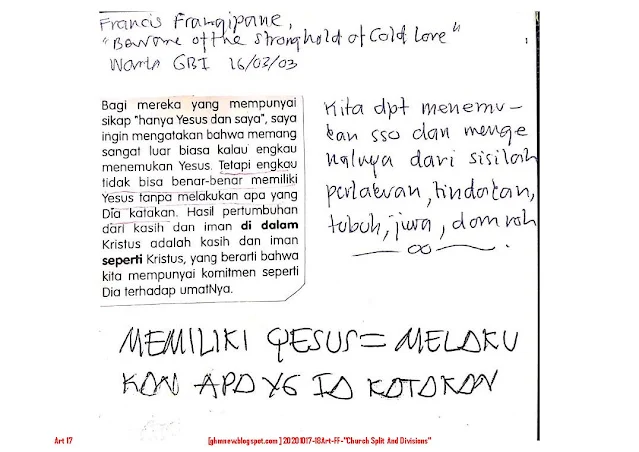 Francis Frangipane,
"Beware of the stronghold of Cold Love"
Warta GBI 16/02/03
Bagi mereka yang mempunyai
sikap "hanya Yesus dan saya", saya
ingin mengatakan bahwa memang
sangat luar biasa kalau engkau
menemukan Yesus. Tetapi engkau
tidak bisa benar-benar memiliki
Yesus tanpa melakukan apa yang
Dia katakan. Hasil pertumbuhan
dari kasih dan iman di dalam
Kristus adalah kasih dan iman
seperti Kristus, yang berarti bahwa
kita mempunyai komitmen seperti
Dia terhadap umatNya.
Kita dpt menemu-
kan sso dan menge
nalnya dari sisilah
perlakuan, tindakan,
tubuh, jiwa, dam roh
MEMILIKI YESUS = MELAKU
KAN APA YG IA KATAKAN
Art 17
[ghmnew.blogspot.com] 20201017-18Art-FF-"Church Split And Divisions"